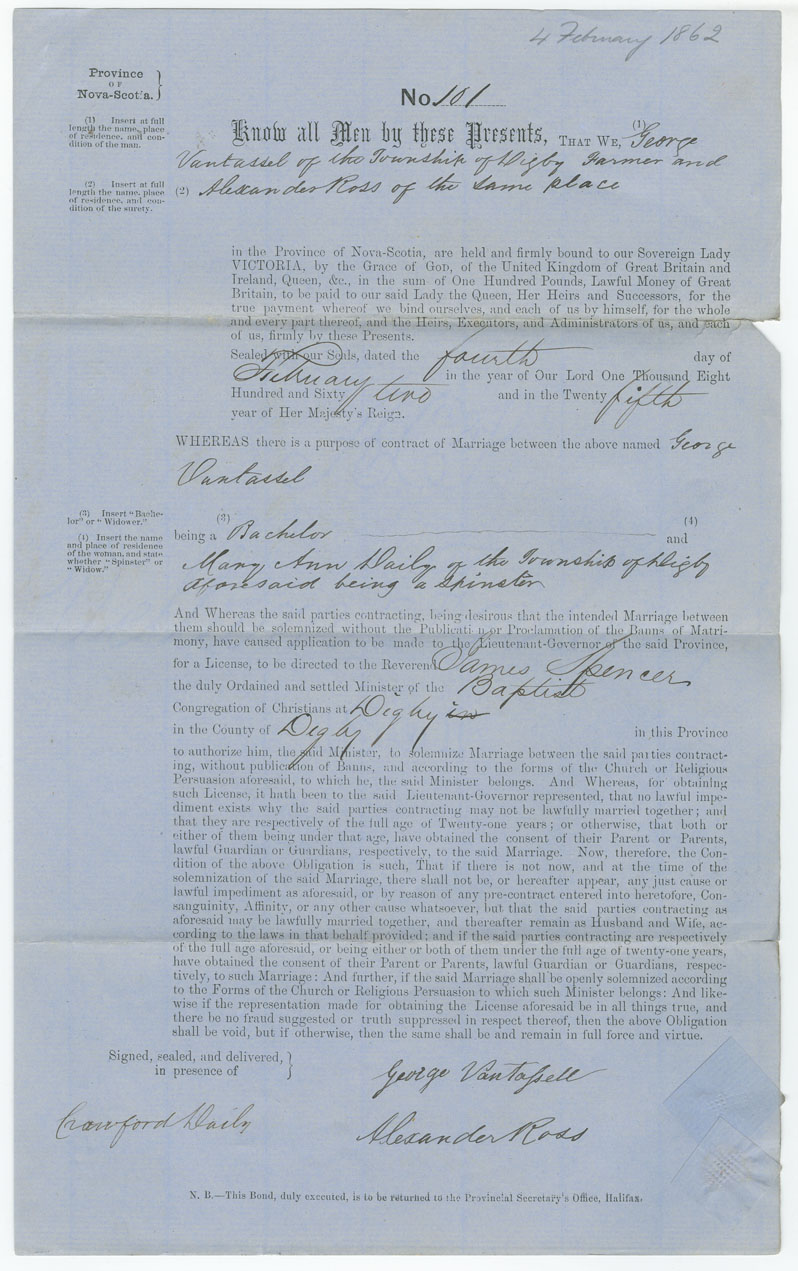 4 February 1862
Province
OF
Nova-Scotia.
No. 101
(1) Insert at full
length the name, place
of residence, and con-
dition of the man.
Know all Men by these Presents, THAT WE, (1) George
Vantassel of the Township of Digby Farmer and
(2) Insert at full
length the name, place
of residence, and con-
dition of the surety.
(2) Alexander Ross of the same place
in the Province of Nova-Scotia, are held and firmly bound to our Sovereign Lady
VICTORIA, by the Grace of GOD, of the United Kingdom of Great Britain and
Ireland, Queen, &c., in the sum of One Hundred Pounds, Lawful Money of Great
Britain, to be paid to our said Lady the Queen, Her Heirs and Successors, for the
true payment whereof we bind ourselves, and each of us by himself, for the whole
and every part thereof, and the Heirs, Executors, and Administrators of us, and each
of us, firmly by these Presents.
Sealed with our Seals, dated the fourth day of
February in the year of Our Lord One Thousand Eight
Hundred and Sixty two and in the Twenty fifth
year of Her Majesty's Reign.
WHEREAS there is a purpose of contract of Marriage between the above named George
Vantassel
(3) Insert "Bache-
lor" or "Widower."
(3) (4)
being a Bachelor and
(4) Insert the name
and place of residence
of the woman, and state
whether "Spinster" or
"Widow."
Mary Ann Daily of the Township of Digby
aforesaid being a Spinster
And Whereas the said parties contracting, being desirous that the intended Marriage between
them should be solemnized without the Publication or Proclamation of the Banns of Matri-
mony, have caused application to be made to the Lieutenant-Governor of the said Province,
for a License, to be directed to the Reverend James Spencer
the duly Ordained and settled Minister of the Baptist
Congregation of Christians at Digby in
in the County of Digby in this Province
to authorize him, the said Minister, to solemnize Marriage between the said parties contract-
ing, without publication of Banns, and according to the forms of the Church or Religious
Persuasion aforesaid, to which he, the said Minister belongs. And Whereas, for obtaining
such License, it hath been to the said Lieutenant-Governor represented, that no lawful impe-
diment exists why the said parties contracting may not be lawfully married together; and
that they are respectively of the full age of Twenty-one years; or otherwise, that both or
either of them being under that age, have obtained the consent of their Parent or Parents,
lawful Guardian or Guardians, respectively, to the said Marriage. Now, therefore, the Con-
dition of the above Obligation is such, That if there is not now, and at the time of the
solemnization of the said Marriage, there shall not be, or hereafter appear, any just cause or
lawful impediment as aforesaid, or by reason of any pre-contract entered into heretofore, Con-
sanguinity, Affinity, or any other cause whatsoever, but that the said parties contracting as
aforesaid may be lawfully married together, and thereafter remain as Husband and Wife, ac-
cording to the laws in that behalf provided; and if the said parties contracting are respectively
of the full age aforesaid, or being either or both of them under the full age of twenty-one years,
have obtained the consent of their Parent or Parents, lawful Guardian or Guardians, respec-
tively, to such Marriage: And further, if the said Marriage shall be openly solemnized according
to the Forms of the Church or Religious Persuasion to which such Minister belongs: And like-
wise if the representation made for obtaining the License aforesaid be in all things true, and
there be no fraud suggested or truth suppressed in respect thereof, then the above Obligation
shall be void, but if otherwise, then the same shall be and remain in full force and virtue.
Signed, sealed, and delivered,
in presence of
George Vantassell
Crawford Daily
Alexander Ross
N. B.—This Bond, duly executed, is to be returned to the Provincial Secretary's Office, Halifax.